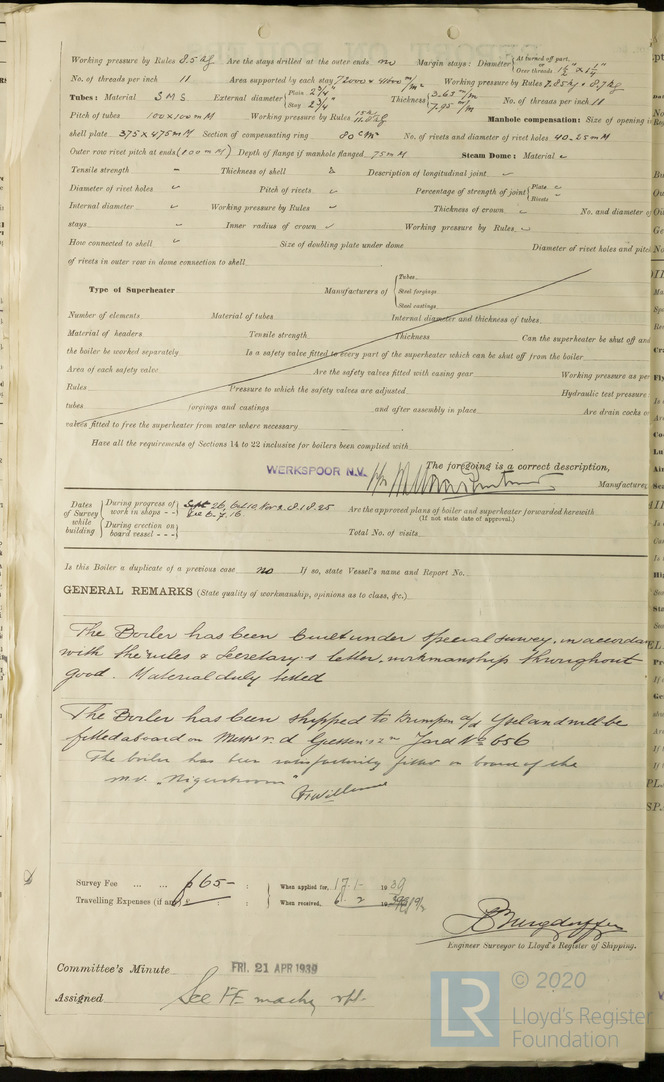 Working pressure by Rules 8.5 kg Are the stays drilled at the outer ends no Margin stays: Diameter { At turned off part, or Over threads 1½" × 1¼"
No. of threads per inch 11 Area supported by each stay Working pressure by Rules
Tubes: Material S M S External diameter { Plain 2¾" Stay 2¾" Thickness { 3.65 m/m 7.95 m/m No. of threads per inch 11
Pitch of tubes 100 x 100 m M Working pressure by Rules Manhole compensation: Size of opening i
shell plate 375 x 475 m M Section of compensating ring 80 cm² No. of rivets and diameter of rivet holes 40-25 m M
Outer row rivet pitch at ends (100 m M) Depth of flange if manhole flanged 75 m M Steam Dome: Material
Tensile strength - Thickness of shell Description of longitudinal joint
Diameter of rivet holes Pitch of rivets Percentage of strength of joint { Plate Rivets
Internal diameter Working pressure by Rules Thickness of crown No. and diameter o
stays - Inner radius of crown Working pressure by Rules
How connected to shell Size of doubling plate under dome Diameter of rivet holes and pitc
of rivets in outer row in dome connection to shell
Type of Superheater Manufacturers of { Tubes Steel forgings Steel castings
Number of elements Material of tubes Internal diameter and thickness of tubes
Material of headers Tensile strength Thickness Can the superheater be shut off and
the boiler be worked separately Is a safety valve fitted to every part of the superheater which can be shut off from the boiler
Area of each safety valve Are the safety valves fitted with easing gear Working pressure as per
Rules Pressure to which the safety valves are adjusted Hydraulic test pressure
tubes forgings and castings and after assembly in place Are drain cocks or
valves fitted to free the superheater from water where necessary
Have all the requirements of Sections 14 to 22 inclusive for boilers been complied with
The foregoing is a correct description,
WERKSPOOR N.V. Manufacturer
Dates of Survey while building { During progress of work in shops - - Sept 26, Oct 10, Nov 2.8.18.25 Dec 6.7.16 Are the approved plans of boiler and superheater forwarded herewith
(If not state date of approval.)
During erection on board vessel - - - Total No. of visits
Is this Boiler a duplicate of a previous case no If so, state Vessel's name and Report No.
GENERAL REMARKS (State quality of workmanship, opinions as to class, &c.)
The Boiler has been built under special survey, in accordan
with the rules & Secretary's letter, workmanship throughout
good. Material duly tested
The Boiler has been shipped to Krimpen a/d Yssel and will be
fitted aboard on Messrs v. d. Giessen's Yard No 656
The boiler has been satisfactorily fitted on board of the
m.v. "Nigerstroom"
Survey Fee ... ... £65-: : When applied for, 17-1- 1939
Travelling Expenses (if any) £ : : When received, 2 19
Engineer Surveyor to Lloyd's Register of Shipping.
Committee's Minute FRI. 21 APR 1939
Assigned See F.E. machy rpt.
LR
© 2020
Lloyd's Register
Foundation